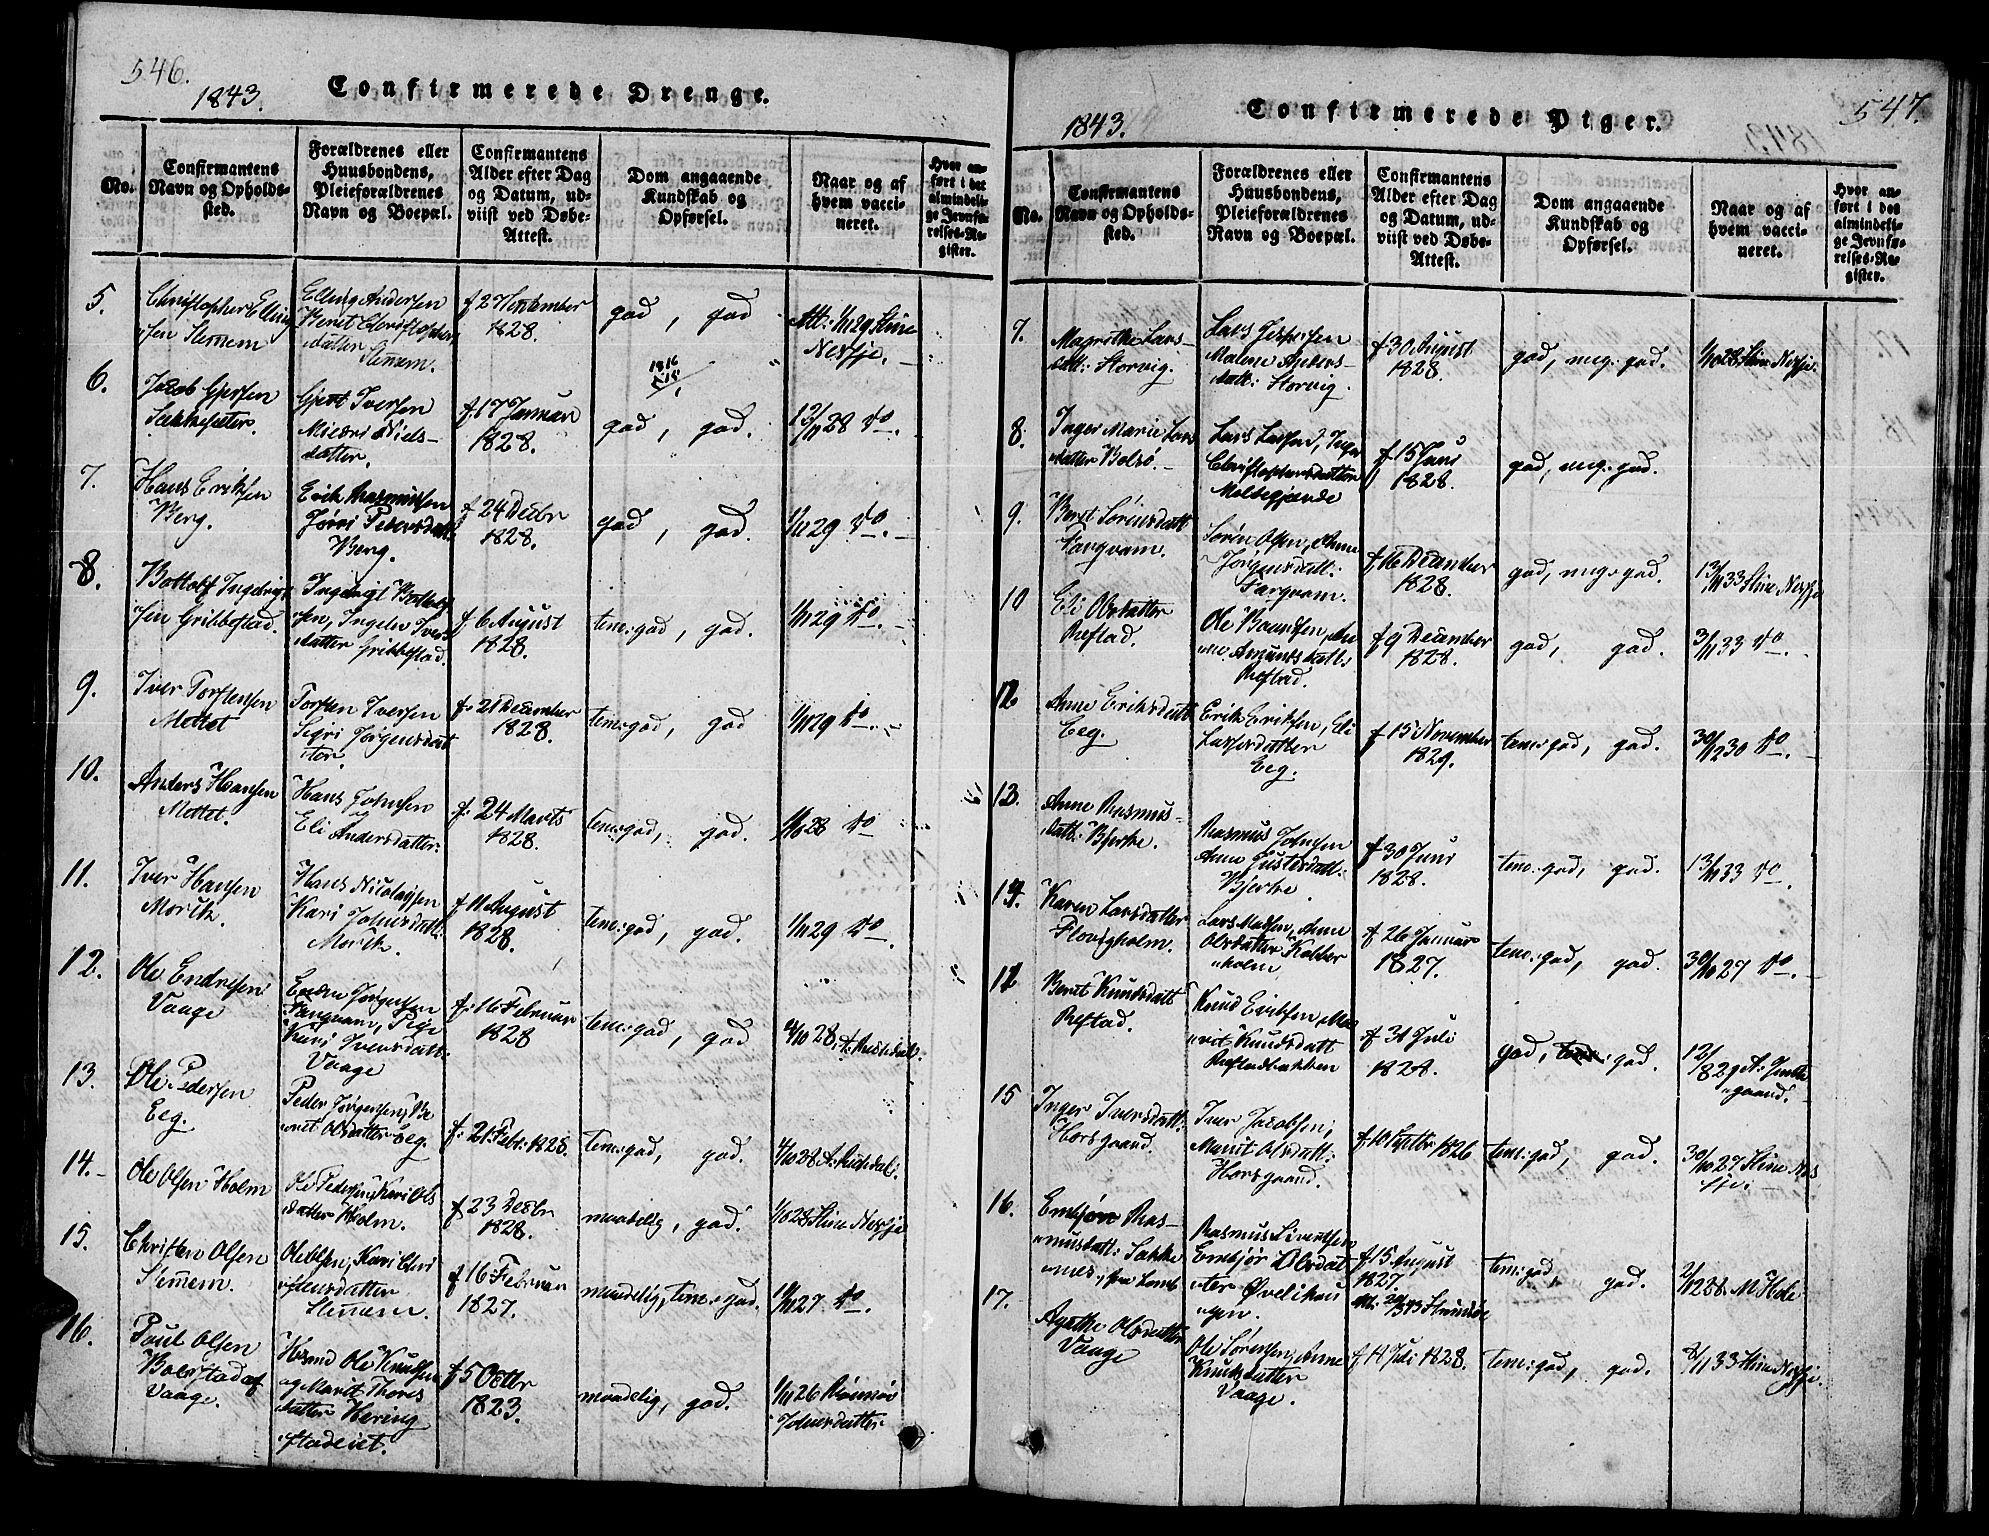 546.
1843.
Confirmerede Drenge.
No.
Confirmantens
Navn og Opholds-
sted.
Forældrenes eller
Huusbondens,
Pleieforældrenes
Navn og Boepæl.
Confirmantens
Alder efter Dag
og Datum, ud-
viist ved Døbe-
Attest.
Dom angaaende
Kundskab og
Opførsel.
Naar og af
hvem vacci-
neret.
Hvor an-
ført i det
almindeli-
ge Jevnfø-
relses-Re-
gister.
5.
Christopher Elling
sen Stemem
Elling Andersen
Beret Christopher
datter
Stemem.
f 27 September
1828.
god, god
Att: 1/11 29 Stine
Nersje.
6.
Jacob Gjertsen
Sekkesæter.
Gjert Iversen
Nields-
datter.
f. 17 Januar
1828.
god, god.
12/11 28 do.
7.
Hans Eriksen
Berg.
Erik Rasmussen
Jørri Pedersdatt:
Berg.
f 24 Decbr
1828.
god, god.
1/11 29 do.
8.
Bottolf Ingebrigt
sen Gribbestad.
Ingebrigt Bottolf
sen, Ingeln Ivers
datter Gribbestad.
f 6 August
1828.
tem: god, god.
1/11 29 do.
9.
Iver Torstensen
Mottet
Torsten Iversen
Sigri Jørgensdat
ter.
f. 21 December
1828.
tem: god, god
1/11 29 do.
10.
Anders Hansen
Mottet.
Hans Johnsen
og
Eli Andersdatter.
f. 24 Marts
1828.
tem: god, god.
1/10 28 do
11.
Iver Hansen
Morik.
Hans Nicolaysen
Kari Johnsdatt:
Morik.
f 11 August
1828.
tem: god, god.
1/11 29 do.
12.
Ole Endresen
Vaage
Endre Jørgensen
Tangvam, Pige
Kari Iversdatt:
Vaage
f. 16 Februar
1828
tem: god, god
4/10 28, A. Rusedal.
13.
Ole Pedersen
Eeg.
Peder Jørgensen, Be
ret Olsdatter Eeg.
f. 21. Febr: 1828.
tem: god, god.
4/10 28 A. Rusedal.
14.
Ole Olsen Holm
Ole Pedersen, Kari Ols
datter Holm.
f 23 Decbr
1828.
maadelig, god.
1/10 28 Stine Nersje
15.
Christen Olsen
Stemem.
Ole Olsen, Kari Chri
stensdatter
Stemem.
f 16 Februar
1827.
maadelig, tem: god.
1/11 27 do.
16.
Paul Olsen
Bolstad af
Vaage.
Hsmd Ole Knudsen
og Marit Thores
datter Hering
stadeiet.
f 5 Octbr
1823.
maadelig, god.
1/11 26 Rønnøv
Johnsdatter.
1843.
Confirmerede Piger.
547.
No.
Confirmantens
Navn og Opholds-
sted.
Forældrenes eller
Huusbondens,
Pleieforældrenes
Navn og Boepæl.
Confirmantens
Alder efter Dag
og Datum, ud-
viist ved Døbe-
Attest.
Dom angaaende
Kundskab og
Opførsel.
Naar og af
hvem vacci-
neret.
Hvor an-
ført i det
almindeli-
ge Jevnfø-
relses-Re-
gister.
7.
Magrethe Lars-
datt: Horvig.
Lars Jespersen
Malene Anders-
datt: Horvig.
f 30 August
1828.
god, meg: god.
1/10 28 Stine Nersje.
8.
Inger Marie Lars
datter Bolsø.
Lars Larsen, Inger
Christophersdatter
Moldegjærde
f 15 Juni
1828.
god, meg: god.
9.
Beret Sørensdatt
Tangvam.
Søren Olsen, Anne
Jørgensdatt:
Tangvam.
f. 16 December
1828.
god, meg: god.
13/11 33 Stine Nersje
10
Eli Olsdatter
Refstad.
Ole Baardsen, An
ne Amundsdatt:
Refstad.
f 9 December
1828.
god, god.
3/11 33 do.
12
Anne Eriksdatt
Eeg.
Erik Eriksen, Eli
Lassesdatter
Eeg.
f 15 November
1829.
tem: god, god.
30/12 30 do.
13.
Anne Rasmus-
datt: Bjerke.
Rasmus Johnsen
Anne Justesdatt:
Bjerke.
f 30 Juni
1828.
tem: god, god.
13/11 33 do.
14.
Karen Larsdatter
Flovigholm.
Lars Madsen, Anne
Olsdatter Kobber
holm
f 26 Januar
1827.
tem: god, god.
30/10 27 do.
Beret Knudsdatt
Refstad.
Knud Eriksen, Ma
rit Knudsdatt
Refstadbakken
f 31 Juli
1828.
god, god.
12/8 29 A.
gaard.
15
Inger Iversdatt:
Horsgaard.
Iver Jacobsen,
Marit Olsdatt:
Horsgaard.
f 10 Septbr 1826
tem: god, god.
30/10 27 Stine Ners
je.
16.
Embjør Ras-
musdatt: Sække
nes, fra Lomb
Rasmus Sivertsen
Embjør Olsdat
ter Øvelikou
gen.
f 15 August
1827
tem: god, god.
2/12 28. M Hole
17.
Agathe Olsdatter
Vaage
Ole Sørensen, Anne
Knudsdatter
Vaage.
f. 11 Juli 1828.
tem: god, god.
8/11 33 Stine Nersje.